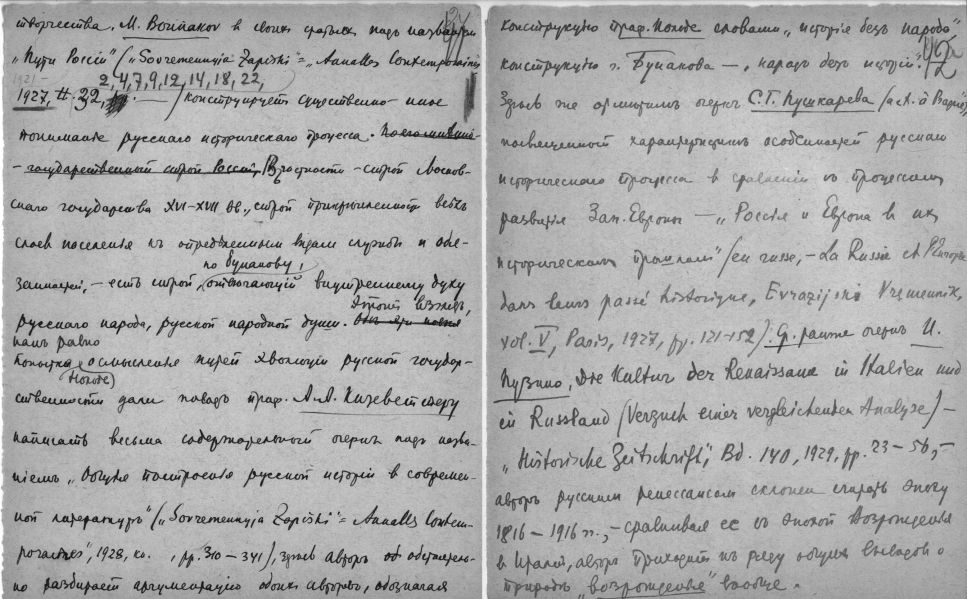 творчества. М. Вишняков в своих статьях под названием
„Пути Россiи" („Sovremennyja Zapiski" = „Annales Contemporaines"
1921—
2, 4, 7, 9, 12, 14, 18, 22,
1927, №: 32, —) конструирует существенно иное
понимание русскаго историческаго процесса.
государственный строй Россiи. В частности — строй Москов-
скаго государства XVI–XVII вв., строй прикрепленности всех
слоев населенiя к определенным видам службы и обя-
по Бунакову,
занностей, — есть строй, отвечающiй внутреннему духу
русскаго народа, русской народной души.
нам равно
Попытка осмысленiя путей эволюцiи русской государ-
Нольде)
ственности дали повод проф. А.А. Кизеветтеру
написать весьма содержательный очерк под назва-
нiем „Общiя построенiя русской исторiи в современ-
ной литературе" („Sovremennyja Zapiski" = Annales Contem-
poraines", 1928, кн. , pp. 310—341), здесь автор обстоятель-
но разбирает аргументацiю обоих авторов, обозначая
42
конструкцiю проф. Нольде словами „исторiя без народа"
конструкцiю г. Бунакова — „народ без исторiи".
Здесь же отметим очерк С.Г. Пушкарева
посвященный характеристике особенностей русскаго
историческаго процесса в сравненiи с процессом
развитiя Зап. Европы — „Россiя и Европа в их
историческом прошлом" (en russe, — La Russie et l'Europe
dans leurs passé historique, Evrazijski Vremennik,
vol. V, Paris, 1927, pp. 121–152). Ср. также очерк И.
Пузино, Die Kultur der Renaissance in Italien und
in Russland (Versuch einer vergleichenden Analyse) —
„Historische Zeitschrift", Bd. 140, 1929, pp. 23–56, —
автор русским ренессансом склонен считать эпоху
1816–1916 гг., — сравнивая ее с эпохой Возрожденiя
в Италiи, автор приходит к ряду общих выводов о
природе „возрожденiя" вообще.